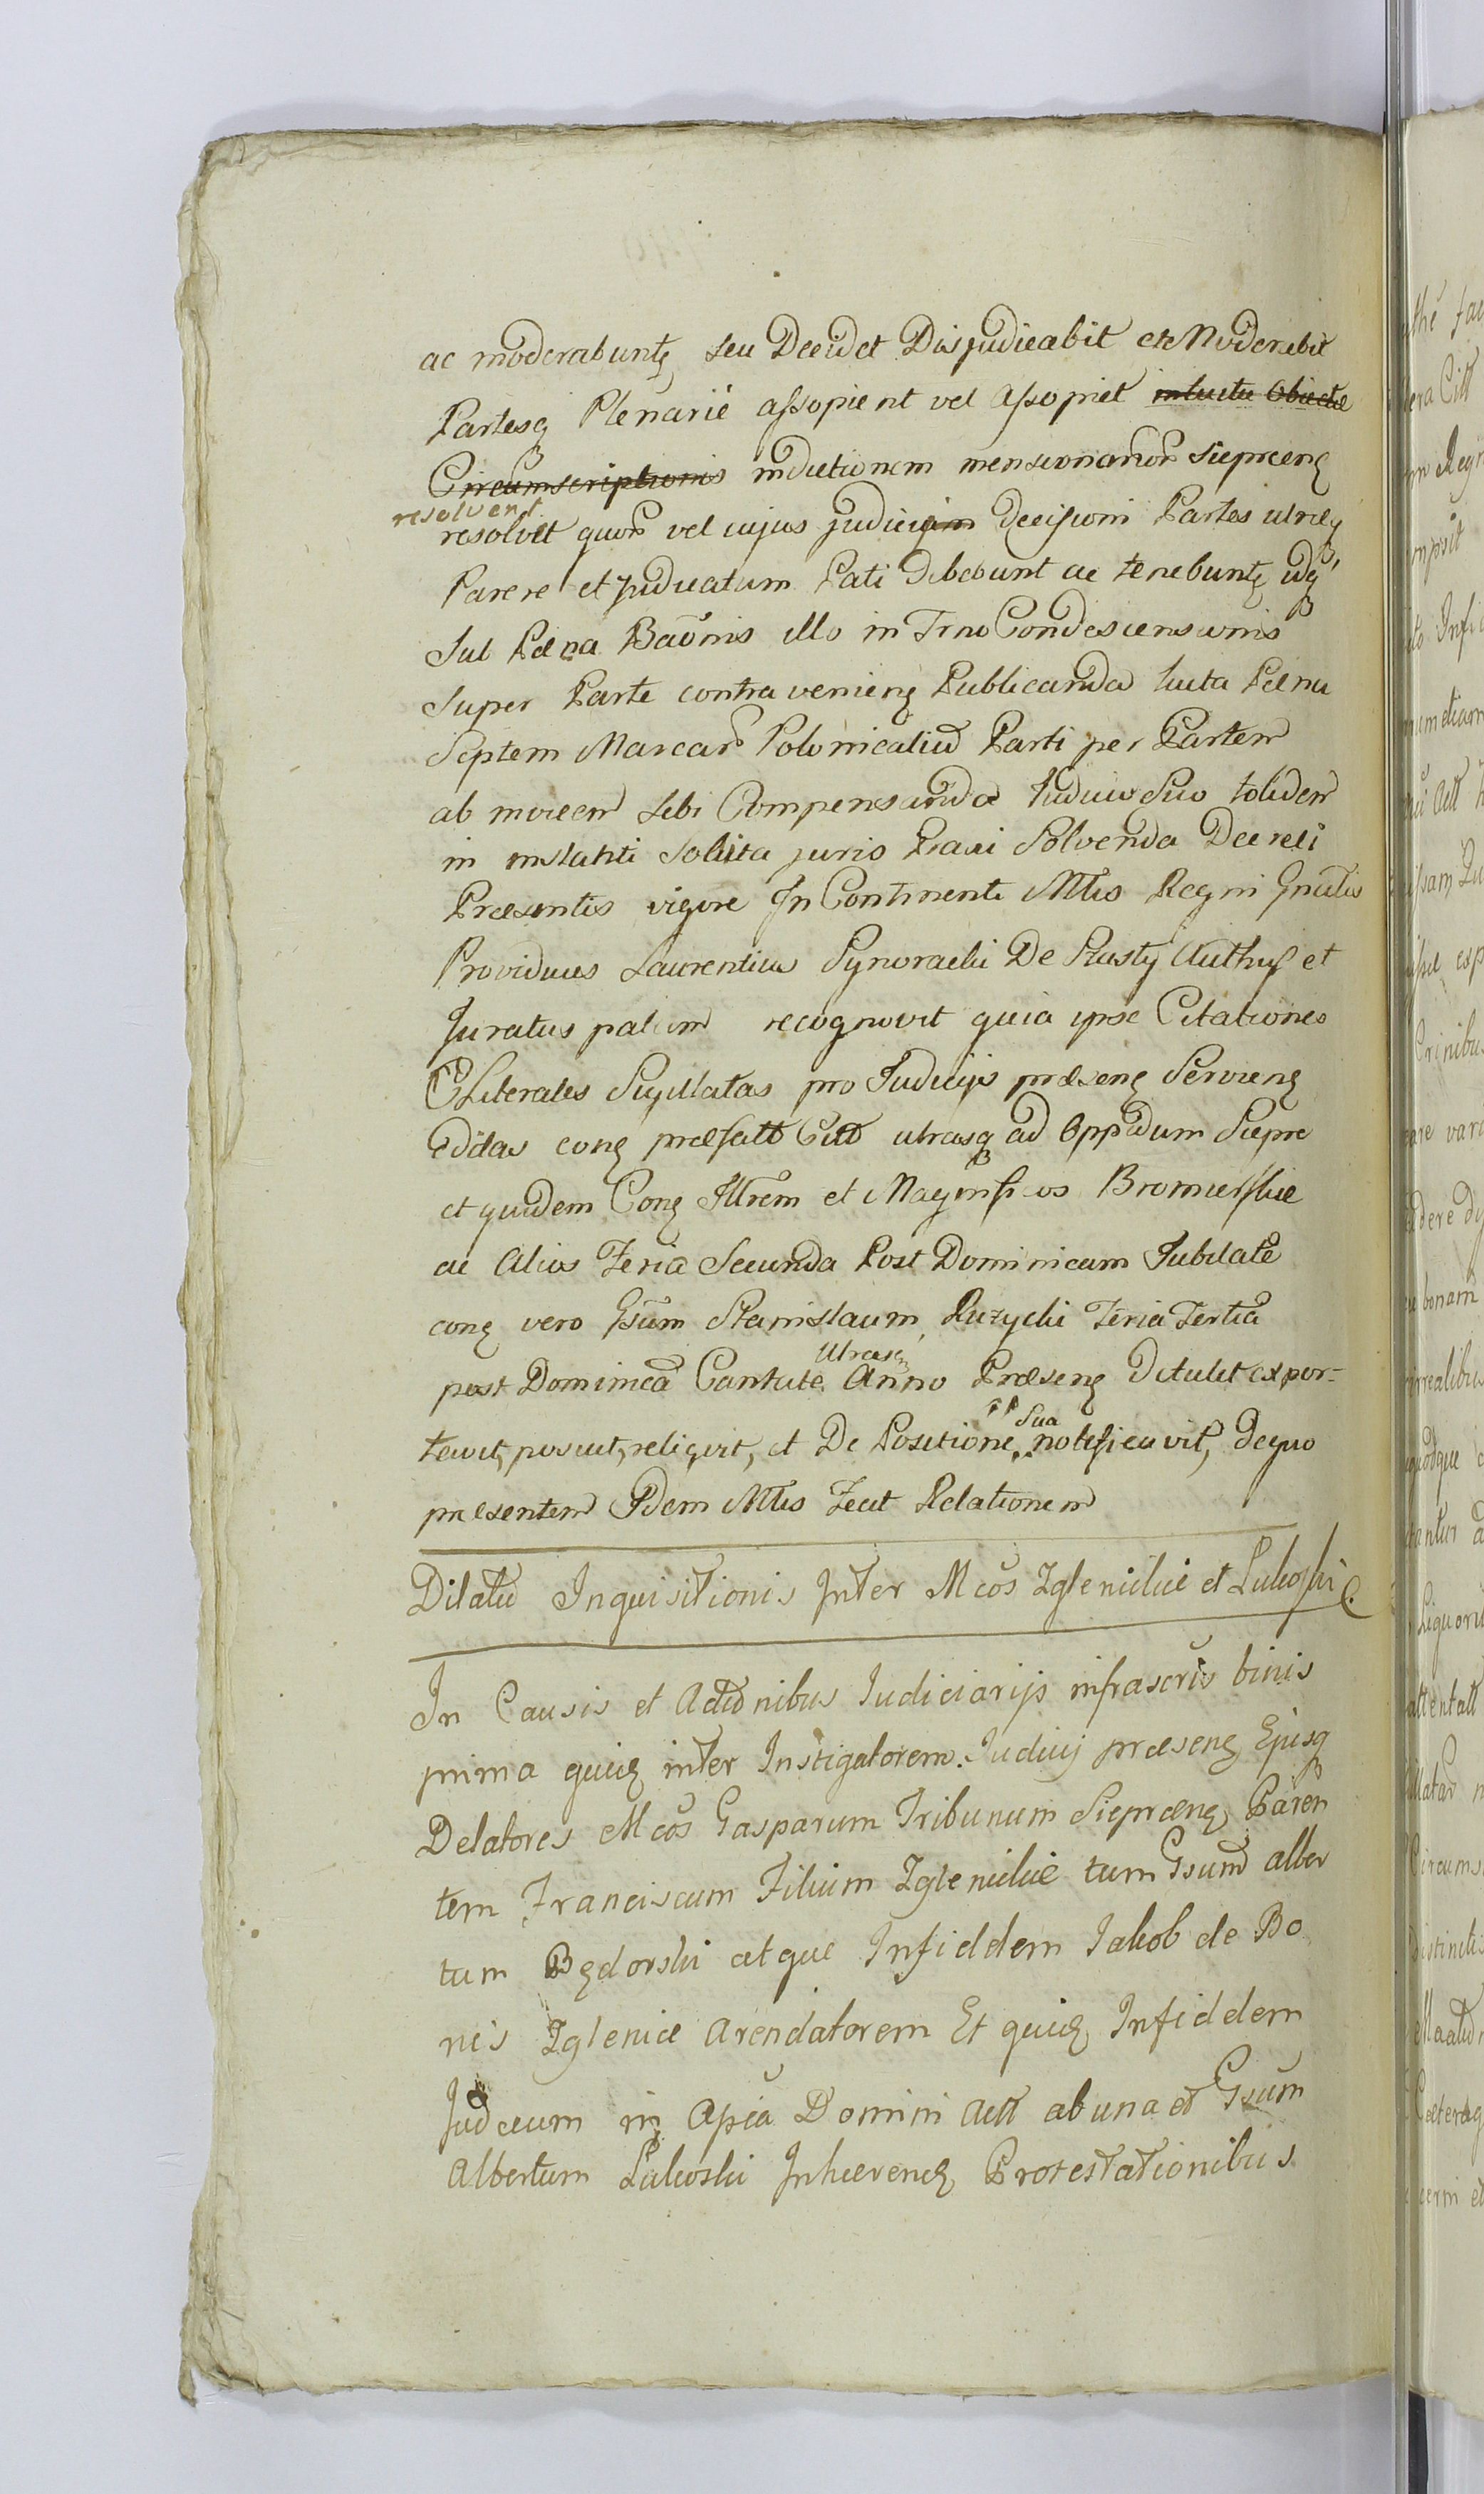 ac moderabuntȩ seu Decidet Disjudicabit et Moderabit
Partesq̨ Plenarie assopient vel assopiet intuitu Objectæ
Circumscriptionis inductionem mensionanoȓ Sieprcenȩ
resolvent
resolvet quoȓ vel cujus judicijm decisioni Partes utræq̨
Parere et judicatum Pati debebunt ac tenebuntȩ idq̨
Sub Pæna Baōnis illo in Trno Condescensionis
super Parte contravenienȩ Publicanda luita Pæna
Septem Marcaȓ Polonicaliū Parti per Partem
ab invicem sibi Compensanda Judicio Suo totidem
in instanti soluta juris Paxi Solvenda Decreti
Præsentis vigore In Continenti Mtis Regni Gnalis
Providuus Laurentius Synoracki De Szasty Authus et
Juratus palam recognovit quia ipse Citationes
Literales Sigillatas pro Judicijs præsenȩ Servienȩ
Editas conȩ præfatt Citt utrasq̨ ad Oppidum Siepre
et quidem Conȩ Illrem et Magnificos Bromierskie
ac Alios Feria Secunda Post Dominicam Jubilate
conȩ vero Gsum Stanislaum Ruzycki Feria Tertia
Utrasq̨
post Dominicā Cantate Anno Præsenȩ Detulit expor-
Sua
tavit, posuit, reliqvit, et De Positione notificavit, dequo
præsentem Idem Mtis Fecit Relationem
Dilatio Inquisitionis Inter Mcos Zglenickie et Lukoski
In Causis et Actionibus Judiciarijs infrascris binis
prima quidȩ inter Instigatorem Judicij præsenȩ Ejusq̨
Delatores Mcos Gasparum Tribunum Sieprcenȩ Paren
tem Franciscum Filium Zglenickie tum Gsum alber
tum Bȩdorski atque Infiddem Jakob de Bo
nis Zglenice Arendatorem Et quidȩ Infiddem
Judæum in Apcia Domini Actt abuna et Gsum
Albertum Lukoski Inhærendȩ Protestationibus